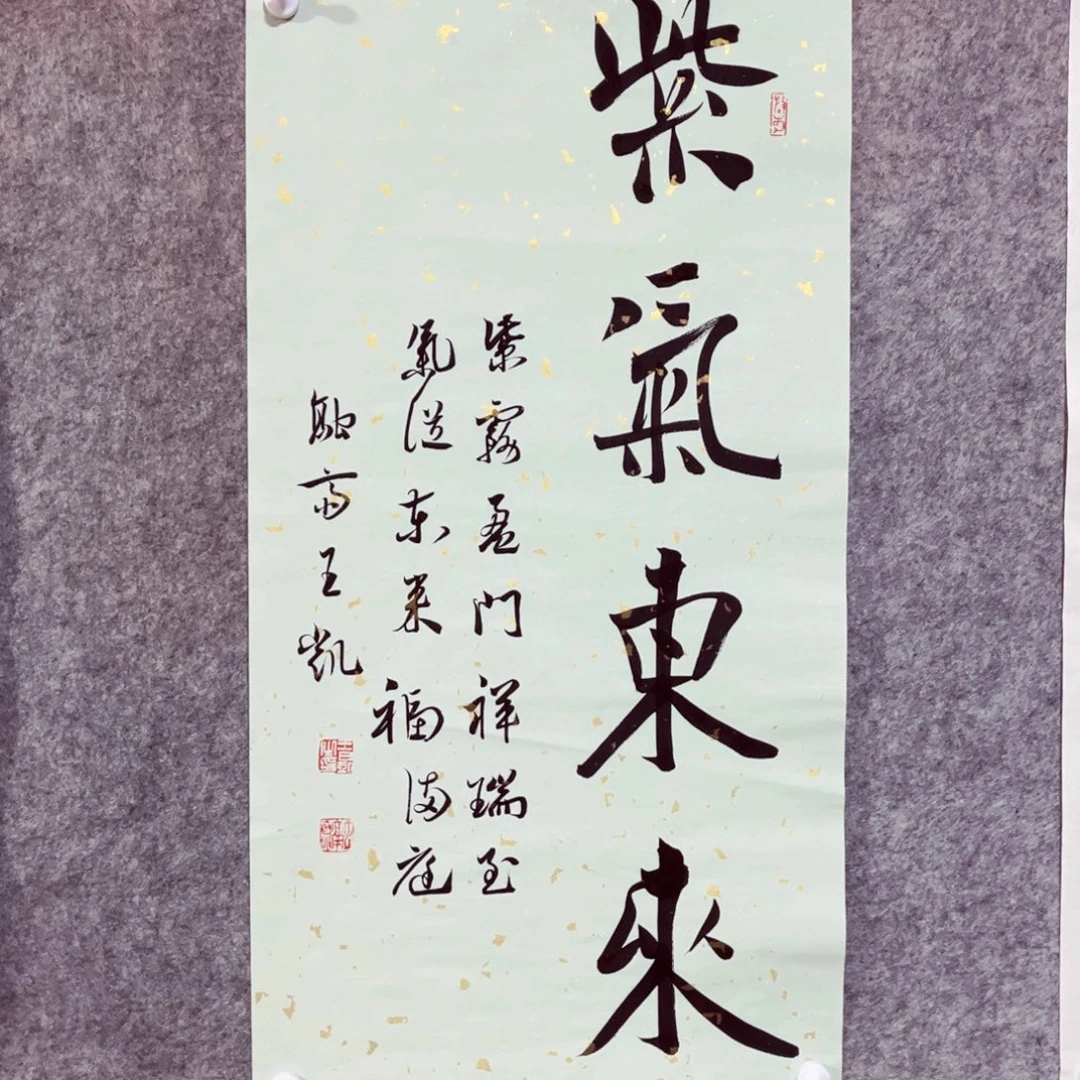 紫氣東來
紫霧盈門祥瑞至
氣從东来福满庭
融斋王凯